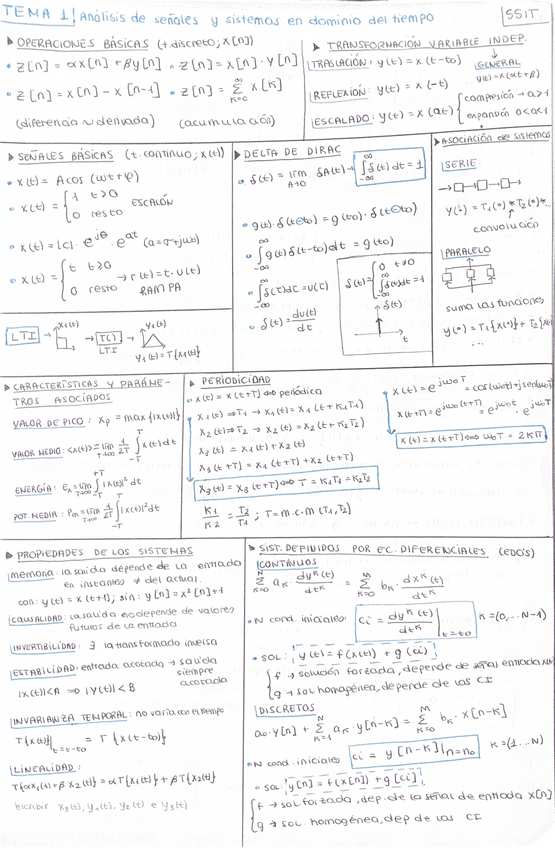 TEMA 1 | Análisis de señales y sistemas en dominio del tiempo
SSIT
▸ OPERACIONES BÁSICAS (t. discreto; x[n])
• z[n] = αx[n] + βy[n] • z[n] = x[n] · y[n]
• z[n] = x[n] - x[n-1] • z[n] = ∑_{k=0}^{∞} x[k]
(diferencia ~ derivada) (acumulación)
▸ TRANSFORMACIÓN VARIABLE INDEP.
TRASLACIÓN: y(t) = x(t-to)
GENERAL
y(t) = x(αt+β)
REFLEXIÓN: y(t) = x(-t)
ESCALADO: y(t) = x(at) { compresión → a>1
expansión 0<a<1
▸ SEÑALES BÁSICAS (t. continuo; x(t))
• x(t) = A cos(ωt+φ)
• x(t) = { 1 t>0
0 resto ESCALÓN
• x(t) = |c| · e^{jθ} · e^{at} (a=σ+jω0)
• x(t) = { t t>0
0 resto → r(t) = t · u(t)
RAMPA
LTI → x1(t) → T() → y1(t)
LTI y1(t) = T{x1(t)}
▸ DELTA DE DIRAC
• δ(t) = lim_{Δ→0} δΔ(t) → ∫_{-∞}^{∞} δ(t)dt = 1
• g(t) · δ(t⊖to) = g(to) · δ(t⊖to)
• ∫_{-∞}^{∞} g(t)δ(t-to)dt = g(to)
• ∫_{-∞}^{∞} δ(τ)dτ = u(t)
• δ(t) = du(t)/dt
δ(t) = { 0 t≠0
∫_{-∞}^{∞} δ(t)dt = 1
δ(t)
t
▸ ASOCIACIÓN de sistemas
SERIE:
y(·) = T1(·) * T2(·) *...
convolución
PARALELO
suma las funciones
y(°) = T1{x(°)} + T2{x(
...
▸ CARACTERÍSTICAS Y PARÁME-
TROS ASOCIADOS
VALOR DE PICO: xp = max{|x(t)|}
VALOR MEDIO: <x(t)> = lim_{T→∞} 1/2T ∫_{-T}^{T} x(t)dt
ENERGÍA: Ex = lim_{T→∞} ∫_{-T}^{+T} |x(t)|² dt
POT. MEDIA: Pm = lim_{T→∞} 1/2T ∫_{-T}^{T} |x(t)|² dt
▸ PERIODICIDAD
• x(t) = x(t+T) ⇔ periódica
• x1(t) ⇒ T1 → x1(t) = x1(t+K1T1)
x2(t) ⇒ T2 → x2(t) = x2(t+K2T2)
x3(t) = x1(t) + x2(t)
x3(t+T) = x1(t+T) + x2(t+T)
x3(t) = x3(t+T) ⇔ T = K1T1 = K2T2
K1/K2 = T2/T1 ; T = m.c.m (T1,T2)
x(t) = e^{jω0T} = cos(ω0t) + j sen(ω0t)
x(t+T) = e^{jω0(t+T)} = e^{jω0t} · e^{jω0T}
x(t) = x(t+T) ⇔ ω0T = 2Kπ
▸ PROPIEDADES DE LOS SISTEMAS
memoria: la salida depende de la entrada
en instantes ≠ del actual.
con: y(t) = x(t+1); sin: y[n] = x²[n]+1
CAUSALIDAD: La salida no depende de valores
futuros de la entrada
INVERTIBILIDAD: ∃ la transformada inversa
ESTABILIDAD: entrada acotada → salida
siempre
acotada
|x(t)|<A ⇒ |y(t)|<B
INVARIANZA TEMPORAL: no varía con el tiempo
T{x(t)}|_{t=t-to} = T{x(t-to)}
LINEALIDAD:
T{αx1(t) + βx2(t)} = αT{x1(t)} + βT{x2(t)}
escribir x3(t), y1(t), y2(t) e y3(t)
▸ SIST. DEFINIDOS POR EC. DIFERENCIALES (EDCIS)
CONTÍNUOS
∑_{k=0}^{N} ak · dy^k(t)/dt^k = ∑_{k=0}^{M} bk · dx^k(t)/dt^k
• N cond. iniciales: ci = dy^k(t)/dt^k |_{t=to} K=(0,..N-1)
• SOL: y(t) = f(x(t)) + g(ci)
{ f → solución forzada, depende de señal entrada x(t)
g → sol homogénea, depende de las CI
DISCRETOS
a0·y[n] + ∑_{k=1}^{N} ak·y[n-k] = ∑_{k=0}^{M} bk·x[n-k]
• N cond. iniciales ci = y[n-k]|_{n=n0} K=(1..N)
• sol: y[n] = f(x[n]) + g[ci]
{ f → sol forzada, dep. de la señal de entrada x[n]
g → sol. homogénea, dep de las CI